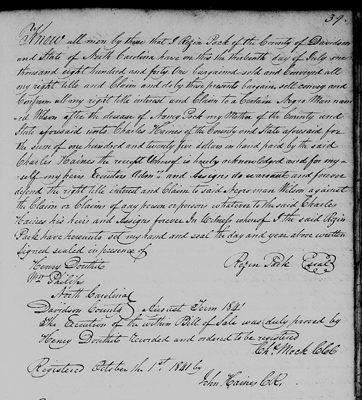 39
Know all men by these that I Rezin Park of the County of Davidson
and State of North Carolina have on this the thirteenth day of July one
thousand eight hundred and forty One bargained sold and Conveyed all
my right title and Claim and do by this presents bargain sell convey and
Confirm all my right title interest and Claim to a Certain Negro Man nam
ed Wilson after the decease of Nancy Park my Mother of the County and
State aforesaid unto Charles Haines of the County and State aforesaid for
the sum of one hundred and twenty five dollars in hand paid by the said
Charles Haines the receipt whereof is hereby acknowledged and for my-
self my heirs Executors Adms. and Assigns do warrant and forever
defend the right title interest and Claim to said Negro man Wilson against
the Claim or Claims of any person or persons whatever to the said Charles
Haines his heirs and Assigns forever In witness whereof I the said Rezin
Park have hereunto set my hand and seal the day and year above written
Signed sealed in presence of
Henry Douthit Rezin Park (seal)
Wm
North Carolina
Davidson County } August Term 1841
The Execution of the within Bill of Sale was duly proved by
Henry Douthit recorded and ordered to be registered
Chs. Mock Clk
Registered October the 1st. 1841 by
John Haines C.R.